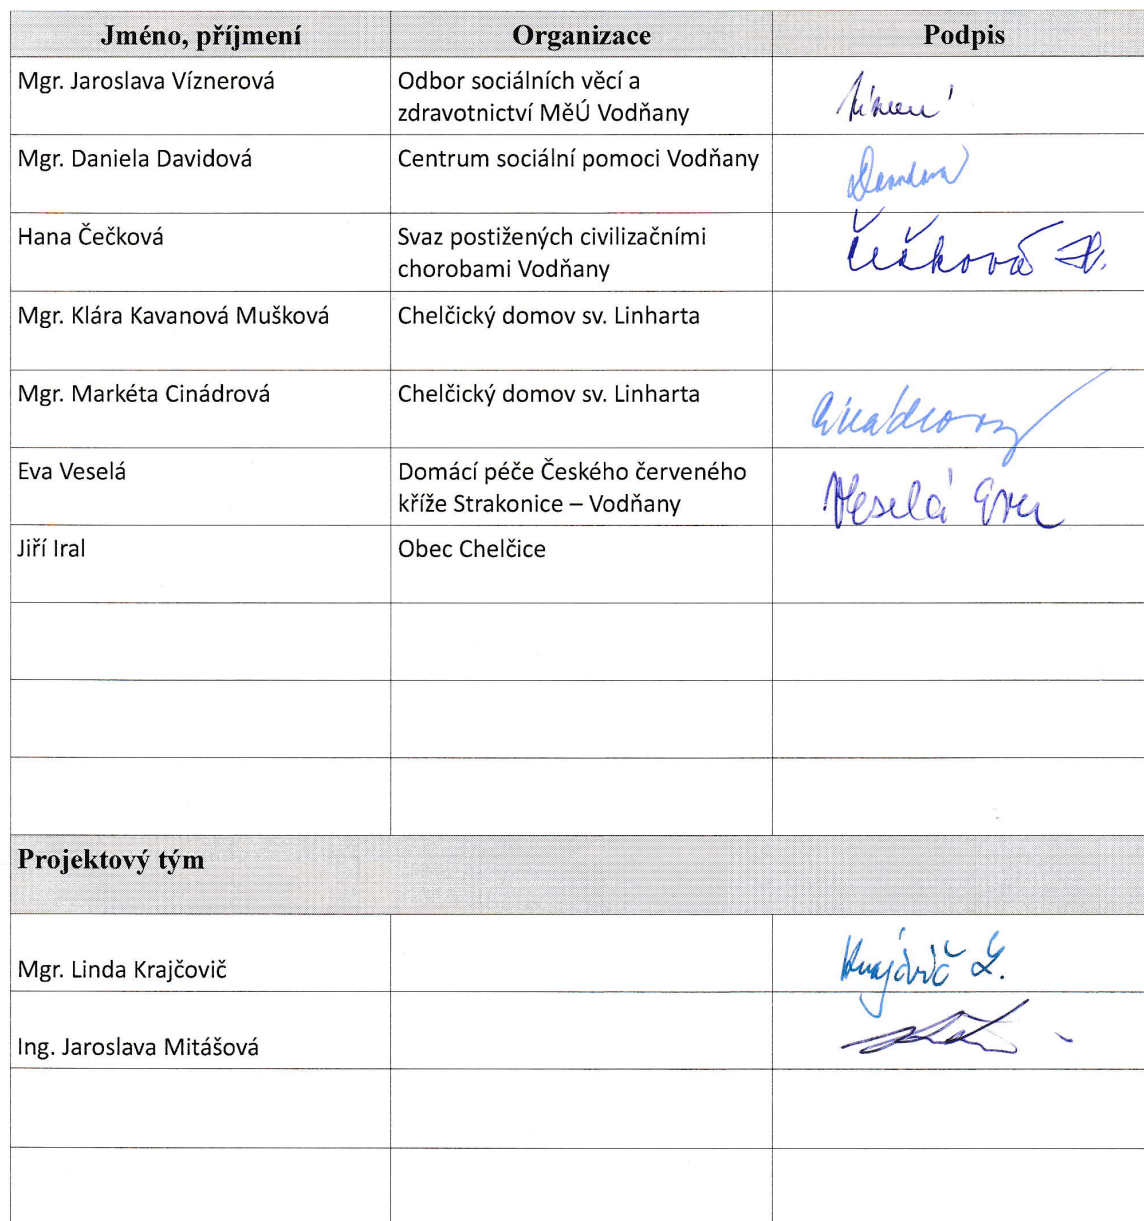 Jméno, příjmení Organizace Podpis
Mgr. Jaroslava Víznerová Odbor sociálních věcí a
zdravotnictví MěÚ Vodňany
Mgr. Daniela Davidová Centrum sociální pomoci Vodňany
Hana Čečková Svaz postižených civilizačními Čečková H.
chorobami Vodňany
Mgr. Klára Kavanová Mušková Chelčický domov sv. Linharta
Mgr. Markéta Cinádrová Chelčický domov sv. Linharta
Eva Veselá Domácí péče Českého červeného Veselá Eva
kříže Strakonice – Vodňany
Jiří Iral Obec Chelčice
Projektový tým
Mgr. Linda Krajčovič Krajčovič L.
Ing. Jaroslava Mitášová